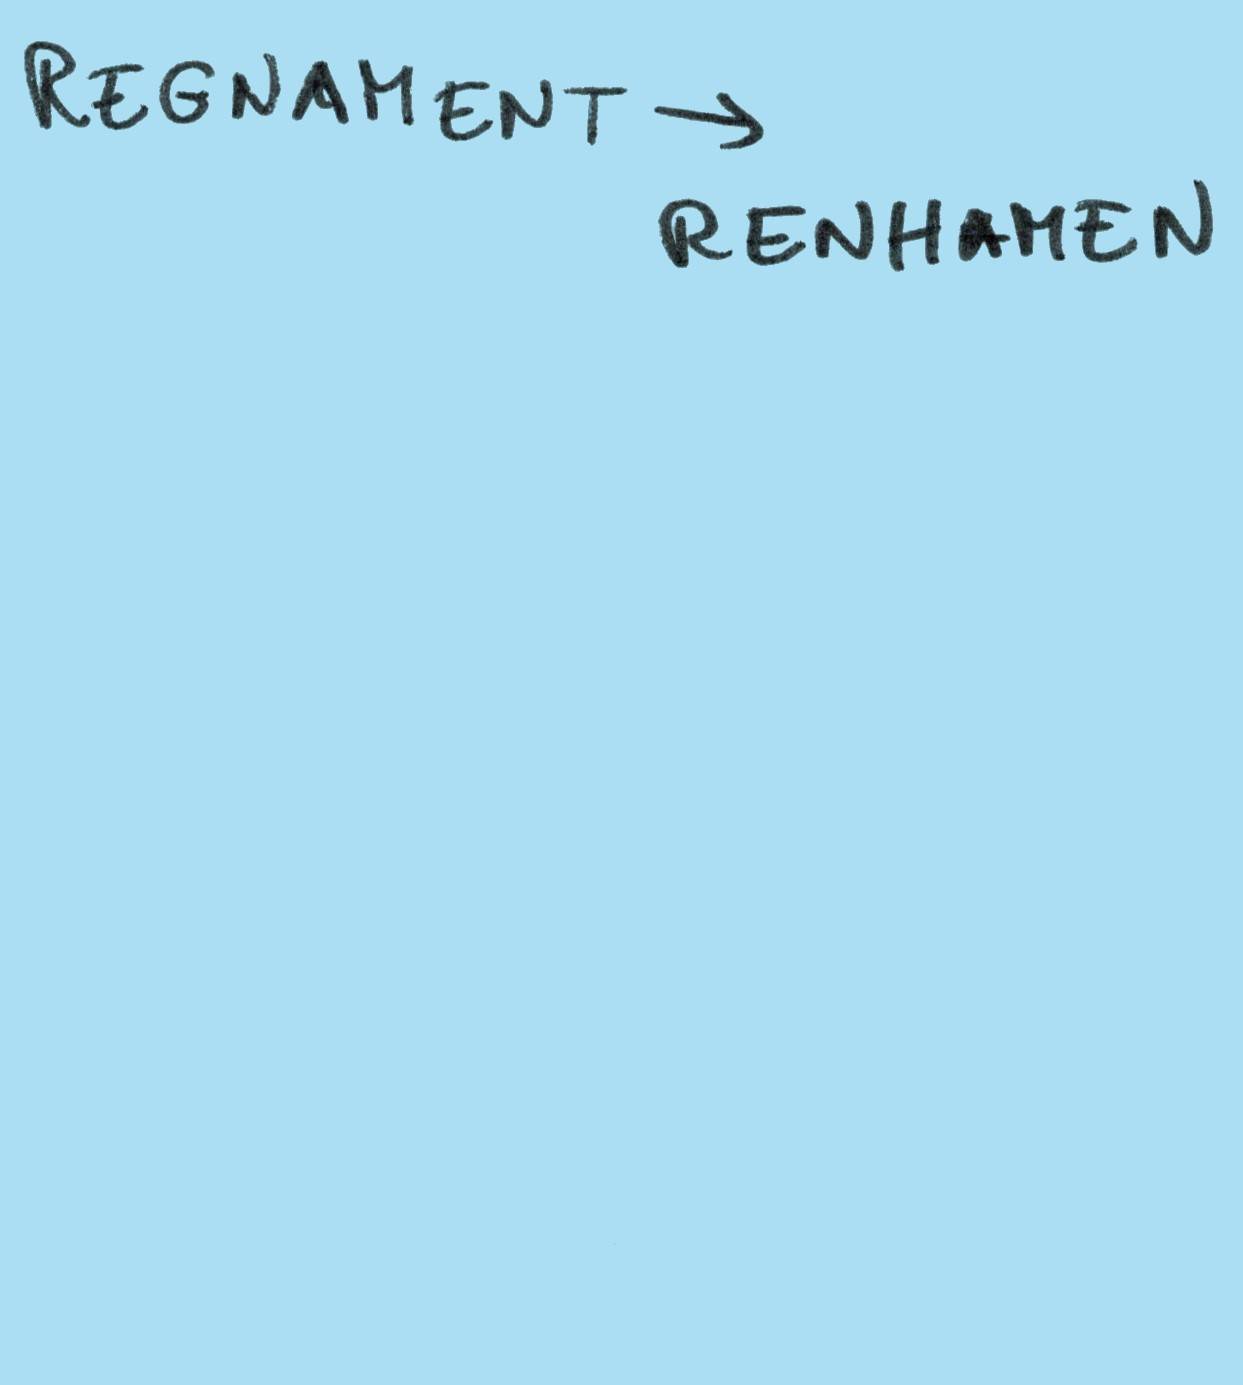 REGNAMENT →
RENHAMEN